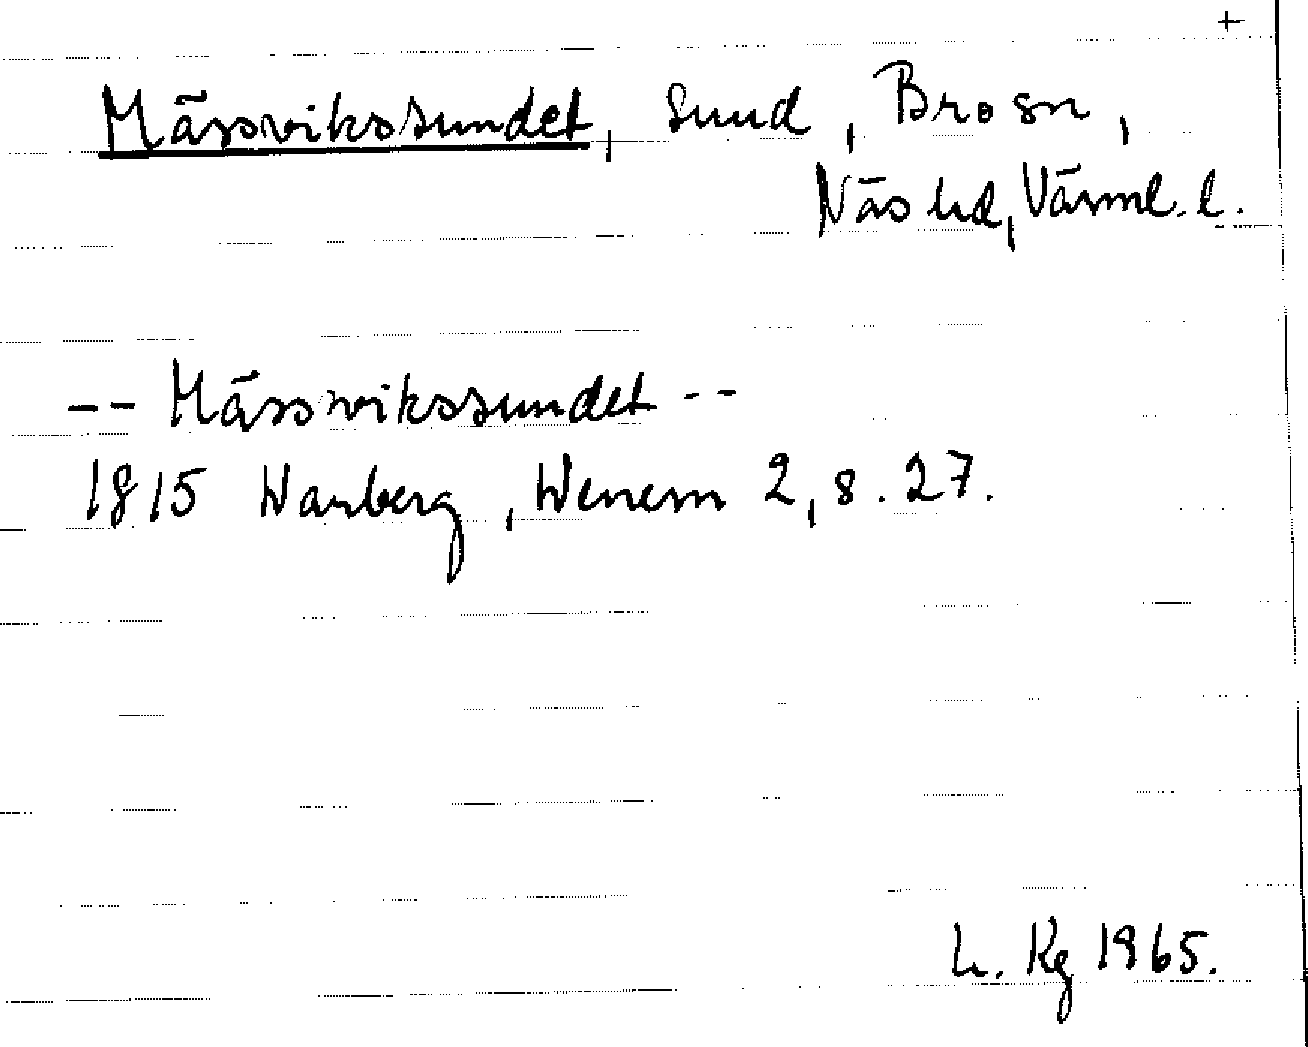 +
Mässvikssundet, Sund, Bro sn,
Näs hd, Värml. l.
-- Mässvikssundet --
1815 Warberg, Wenern 2, s. 27.
L. Kg 1965.